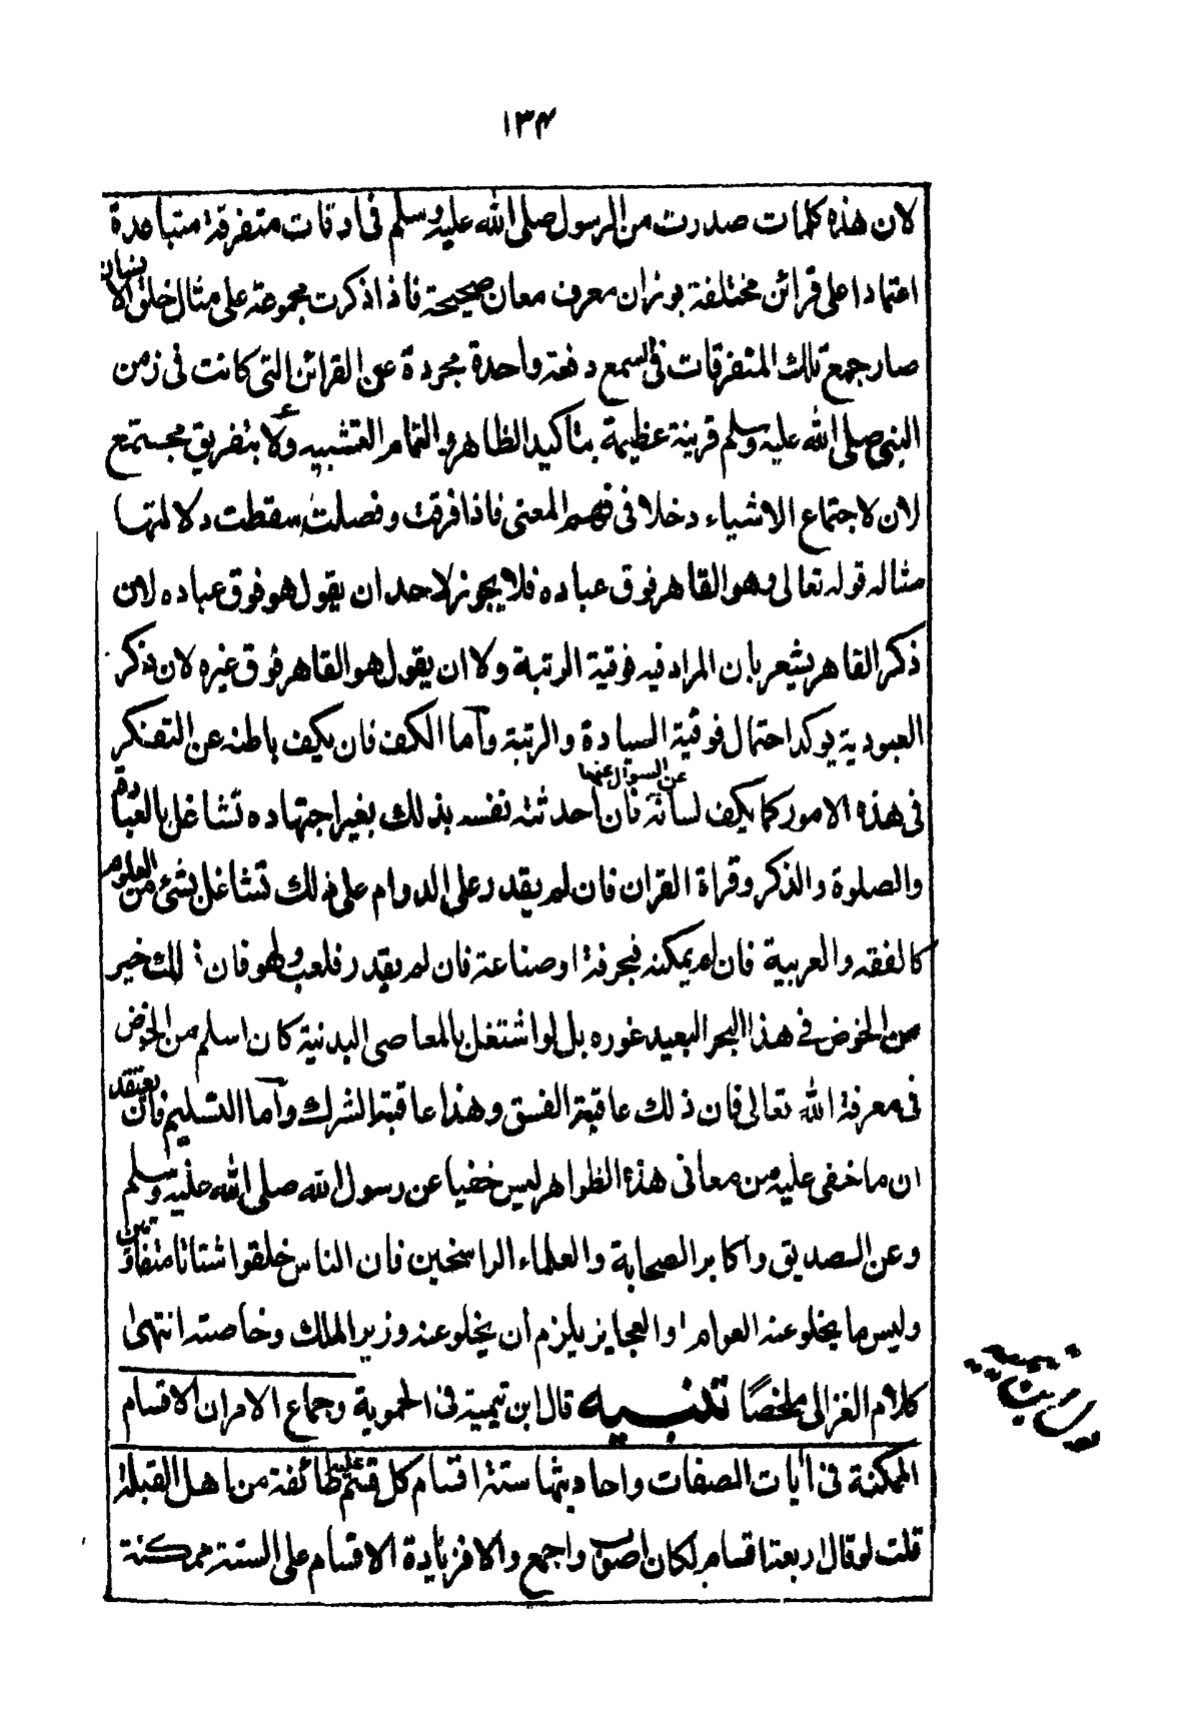 ١٣٤
لان هذه كلمات صدرت من الرسول صلى الله عليه وسلم فى اوقات متفرقة متباعدة
اعتمادا على قرائن مختلفة بوزان معرف معان صحيحة فاذا ذكرت مجموعة على مثال خلق الانسان
صار جمع تلك المتفرقات فى السمع دفعة واحدة مجردة عن القرائن التى كانت فى زمن
النبى صلى الله عليه وسلم قرينة عظيمة بتاكيد الظاهر وايهام التشبيه ولا بتفريق مجتمع
لان لاجتماع الاشياء دخلا فى فهم المعنى فاذا فرقت وفصلت سقطت دلالتها
مثاله قوله تعالى وهو القاهر فوق عباده فلا يجوز لاحد ان يقول هو فوق عباده لان
ذكر القاهر يشعر بان المراد فيه فوقية الرتبة ولا ان يقول هو القاهر فوق غيره لان ذكر
العبودية يوكد احتمال فوقية السيادة والرتبة وآما الكف فان يكف باطنه عن التفكر
فى هذه الامور كما يكف لسانه عن السوال عنها فان احدثته نفسه بذلك بغير اجتهاده تشاغل بالعبادة
والصلوة والذكر وقراة القران فان لم يقدر على الدوام على ذلك تشاغل بشئ من العلوم
كالفقه والعربية فان لم يمكنه فبحرفة او صناعة فان لم يقدر فلعب ولهو فان ذلك خير
من الخوض فى هذا البحر البعيد غوره بل لو اشتغل بالمعاصى البدنية كان اسلم من الخوض
فى معرفة الله تعالى فان ذلك عاقبته الفسق وهذا عاقبته الشرك وآما التسليم فان يعتقد
ان ما خفى عليه من معانى هذه الظواهر ليس خفيا عن رسول الله صلى الله عليه وسلم
وعن الصديق واكابر الصحابة والعلماء الراسخين فان الناس خلقوا اشتاتا متفاوتين
وليس ما يخلو عنه العوام او العجايز يلزم ان يخلو عنه وزير الملك وخاصته انتهى
كلام الغزالى ملخصًا تنبيه قال ابن تيمية فى الحموية وجماع الامران الاقسام
الممكنة فى ايات الصفات واحاديثها ستة اقسام كل قسم عليه طائفة من اهل القبلة
قلت لو قال اربعة اقسام لكان اصوب واجمع والا فزيادة الاقسام على الستة ممكنة
قول ابن تيمية